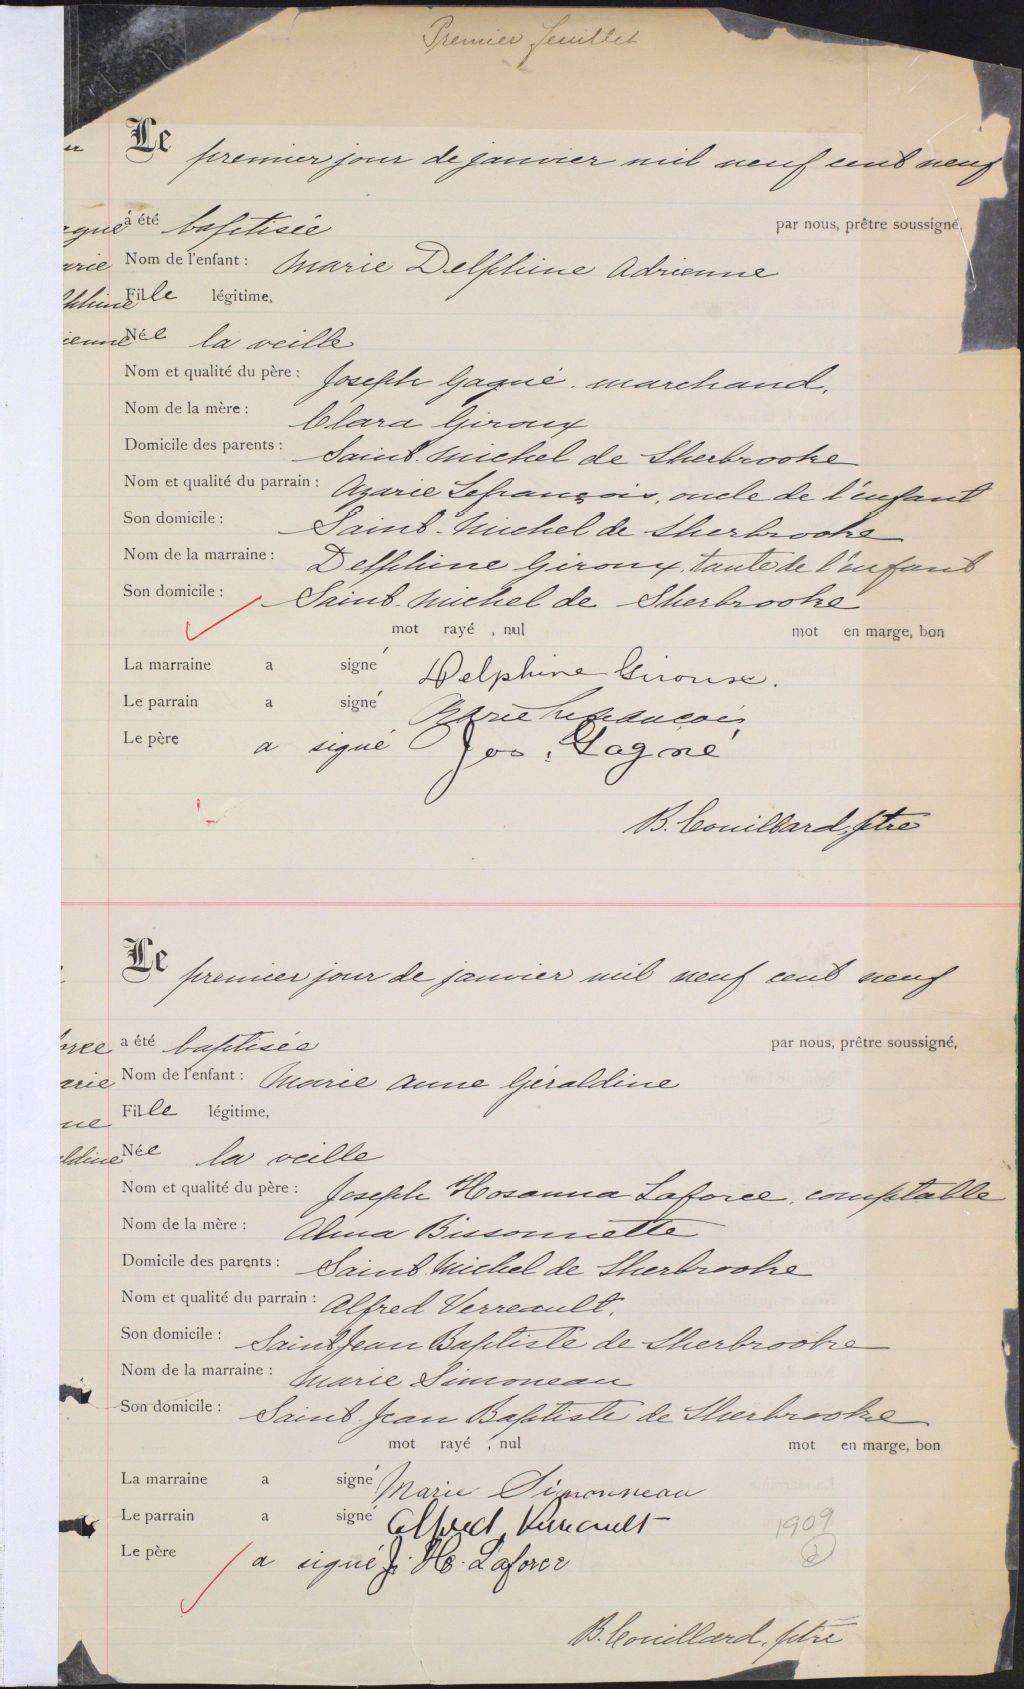 Premier feuillet
Le premier jour de janvier mil neuf cent neuf
à été baptisée par nous, prêtre soussigné,
Nom de l'enfant : Marie Delphine Adrienne
Fille légitime,
Née la veille
Nom et qualité du père : Joseph Gagné. marchand.
Nom de la mère : Clara Giroux
Domicile des parents : Saint-Michel de Sherbrooke
Nom et qualité du parrain : Azarie Lefrançois, oncle de l'enfant
Son domicile : Saint-Michel de Sherbrooke
Nom de la marraine : Delphine Giroux, tante de l'enfant
Son domicile : Saint-Michel de Sherbrooke
mot rayé , nul mot en marge, bon
La marraine a signé Delphine Giroux.
Le parrain a signé Azarie Lefrancois
Le père a signé Jos. Gagné
B. Couillard, ptre
Le premier jour de janvier mil neuf cent neuf
a été baptisée par nous, prêtre soussigné,
Nom de l'enfant : Marie Anne Géraldine
Fille légitime,
Née la veille
Nom et qualité du père : Joseph Hosanna Laforce, comptable
Nom de la mère : Alma Bissonnette
Domicile des parents : Saint-Michel de Sherbrooke
Nom et qualité du parrain : Alfred Verreault.
Son domicile : Saint Jean Baptiste de Sherbrooke
Nom de la marraine : Marie Simoneau
Son domicile : Saint-Jean Baptiste de Sherbrooke
mot rayé , nul mot en marge, bon
La marraine a signé Marie Simonneau
Le parrain a signé Alfred Verreault
1909
Le père a signé J. H. Laforce
2
B. Couillard, ptre